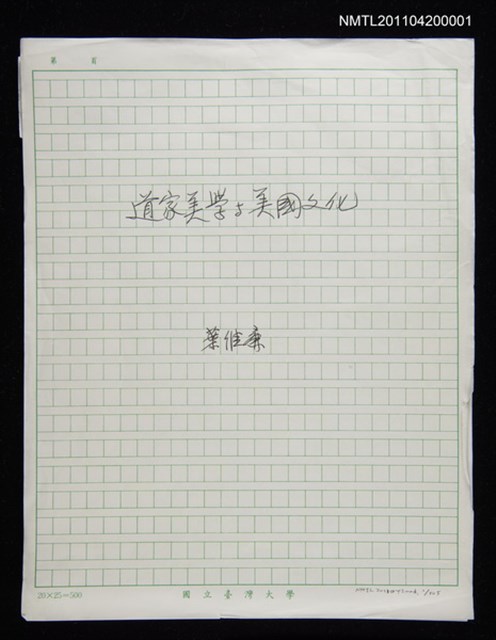 NMTL201104200001
第 頁
道家美学与美國文化
葉維廉
20×25=500
國立臺灣大學